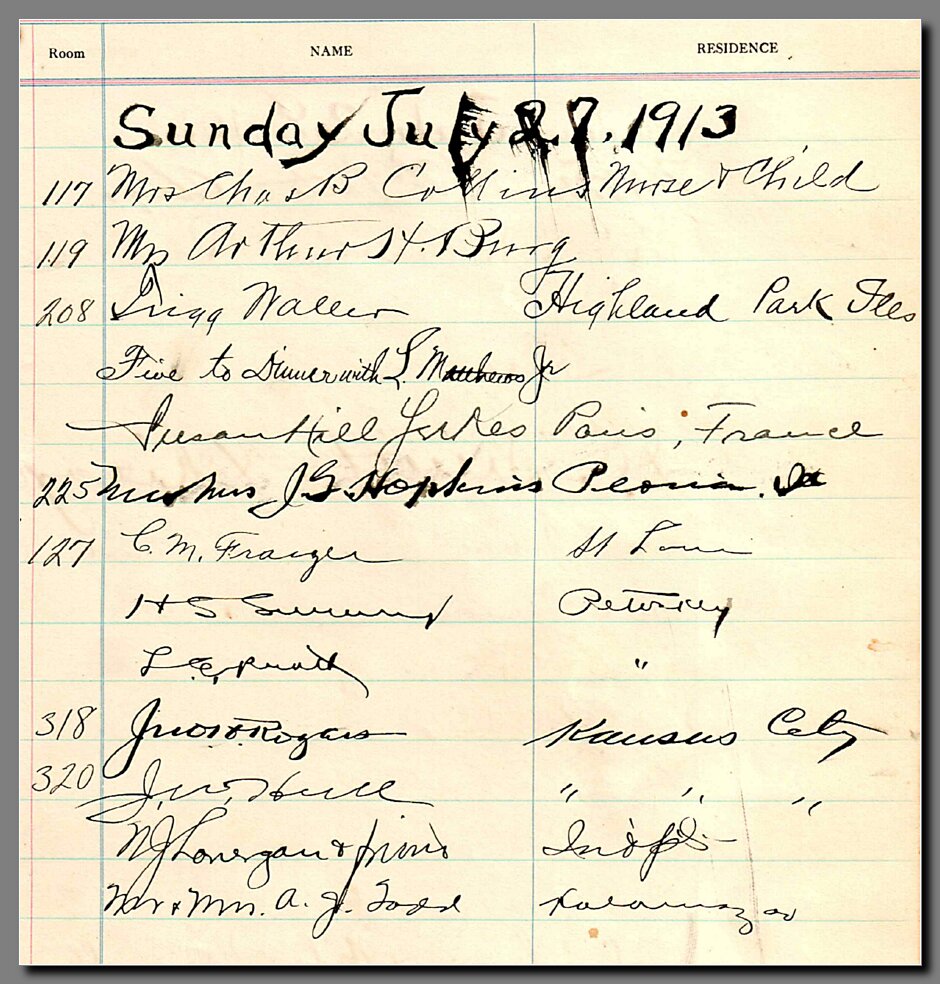 Room NAME RESIDENCE
Sunday July 27, 1913
117 Mrs Chas B Collins Nurse & Child
119 Mrs Arthur H. Burg
208 Trigg Waller Highland Park Ills
Five to Dinner with L. Matthews Jr
Susan Hill Yerkes Paris, France
225 Mr & Mrs J G Hopkins Peoria. Ill
127 C. M. Frazger St Louis
H S Petoskey
L "
318 Jno Rogers Kansas City
320 J. W. Hull " " "
N J Lonergan & friend Indpls
Mr & Mrs. A. J. Todd Kalamazoo